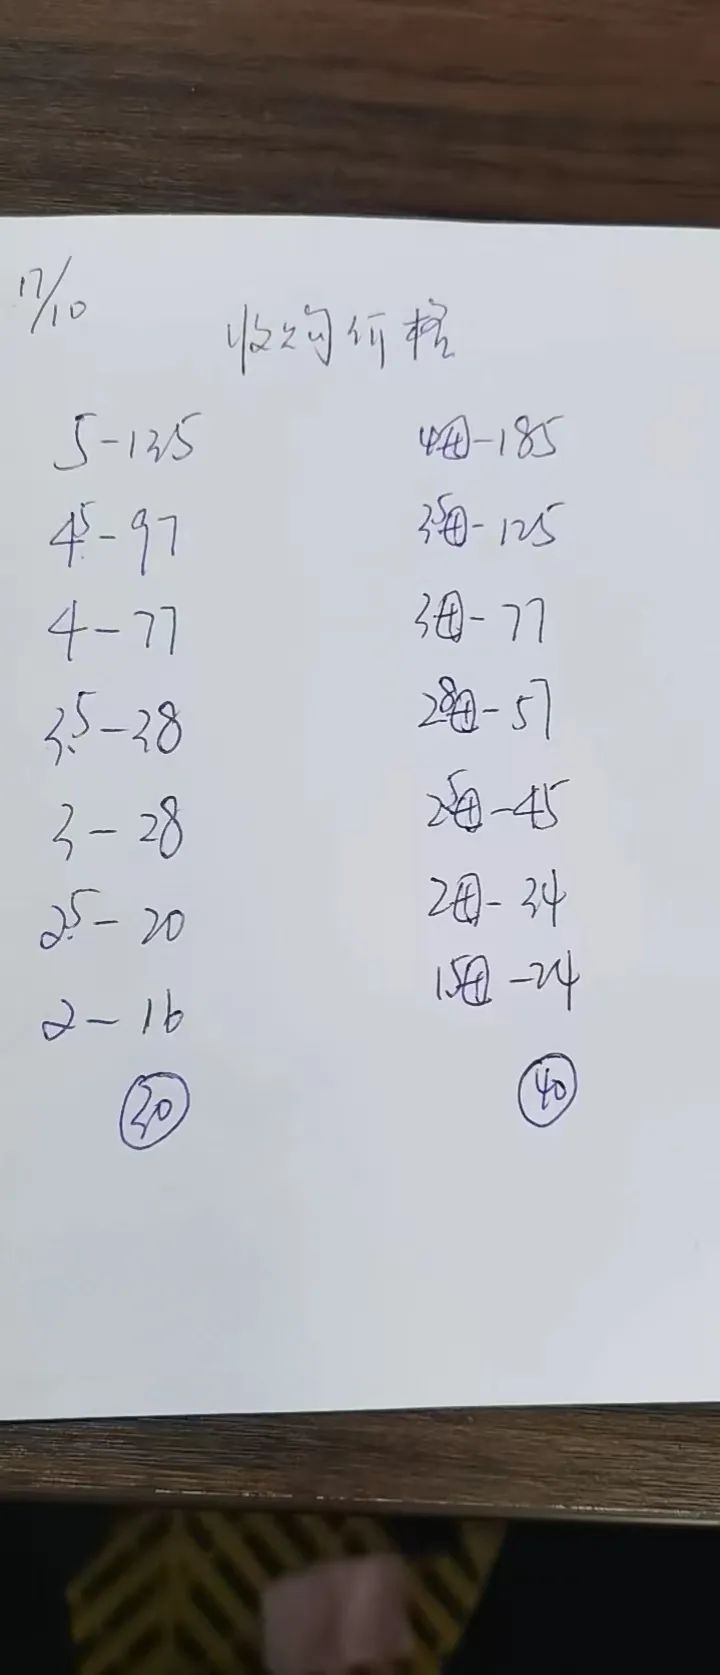 17/10
收购价格
5-135
4.5-97
4-77
3.5-38
3-28
2.5-20
2-16
30
4母-185
35母-125
3母-77
28母-57
25母-45
2母-34
15母-24
40